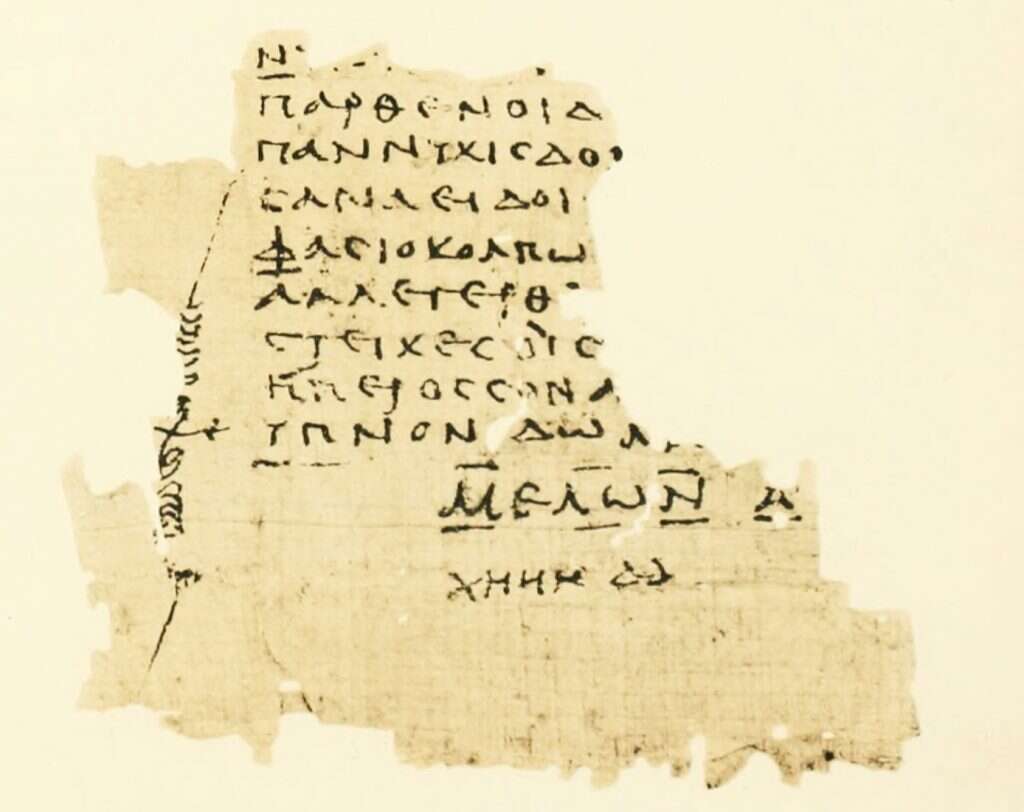 Ν
ΠΑΡΘΕΝΟΙΔ
ΠΑΝΝΥΧΙСΔΟΙ
СΑΝΑΕΙΔΟΙ
ΦΑСΙΟΚΟΛΠΩ
ΑΛΛΕΓΕΡΘ
СΤΕΙΧΕСΟΙС
ΗΠΕΡΟССΟΝΑ
ΥΠΝΟΝ ΔΩΜ
ΜΕΛΩΝ Α
ΧΗΗΗ ΔΔ